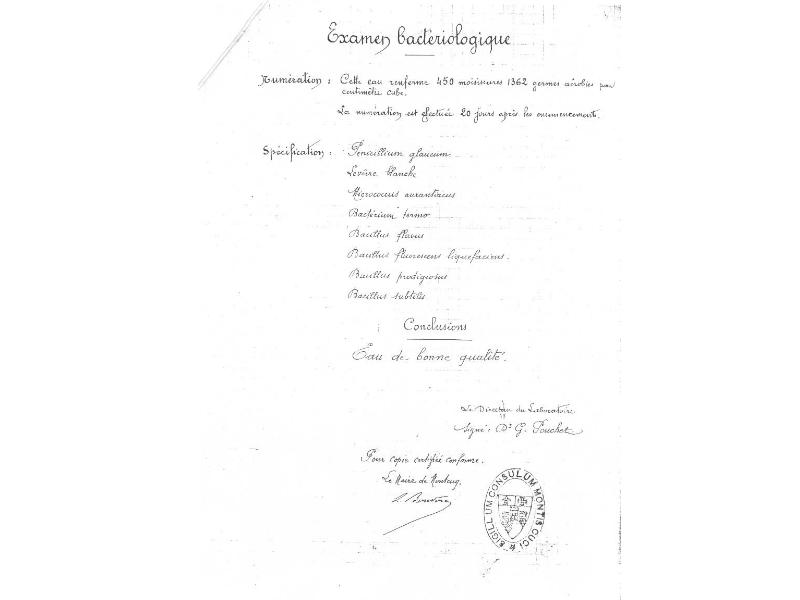 Examen bactériologique
Numération : Cette eau renferme 450 moisissures 1362 germes aérobies par
centimètre cube.
La numération est effectuée 20 jours après les ensemencements.
Spécification : Penicillium glaucum
Levûre blanche
Micrococcus aurantiacus
Bactérium termo
Bacillus flavus
Bacillus fluorescens liquefaciens.
Bacillus prodigiosus
Bacillus subtilis
Conclusions
Eau de bonne qualité.
Le Directeur du Laboratoire
Signé : Dr G. Pouchet
Pour copie certifiée conforme.
Le Maire de Montcuq.
SIGILLUM CONSULUM MONTIS CUCI